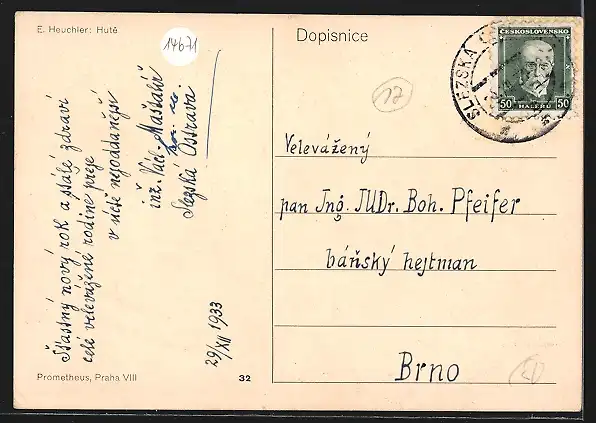 E. Heuchler: Hutě
14671
Dopisnice
Šťastný nový rok a stálé zdraví
celé velevážené rodině přeje
v úctě nejoddanější
inž. Václ. Maštalíř
Slezská Ostrava
29/XII 1933
Prometheus, Praha VIII
32
ČESKOSLOVENSKO
50 HALÉŘŮ 50
SLEZSKÁ
17
Velevážený
pan Ing. JUDr. Boh. Pfeifer
báňský hejtman
Brno